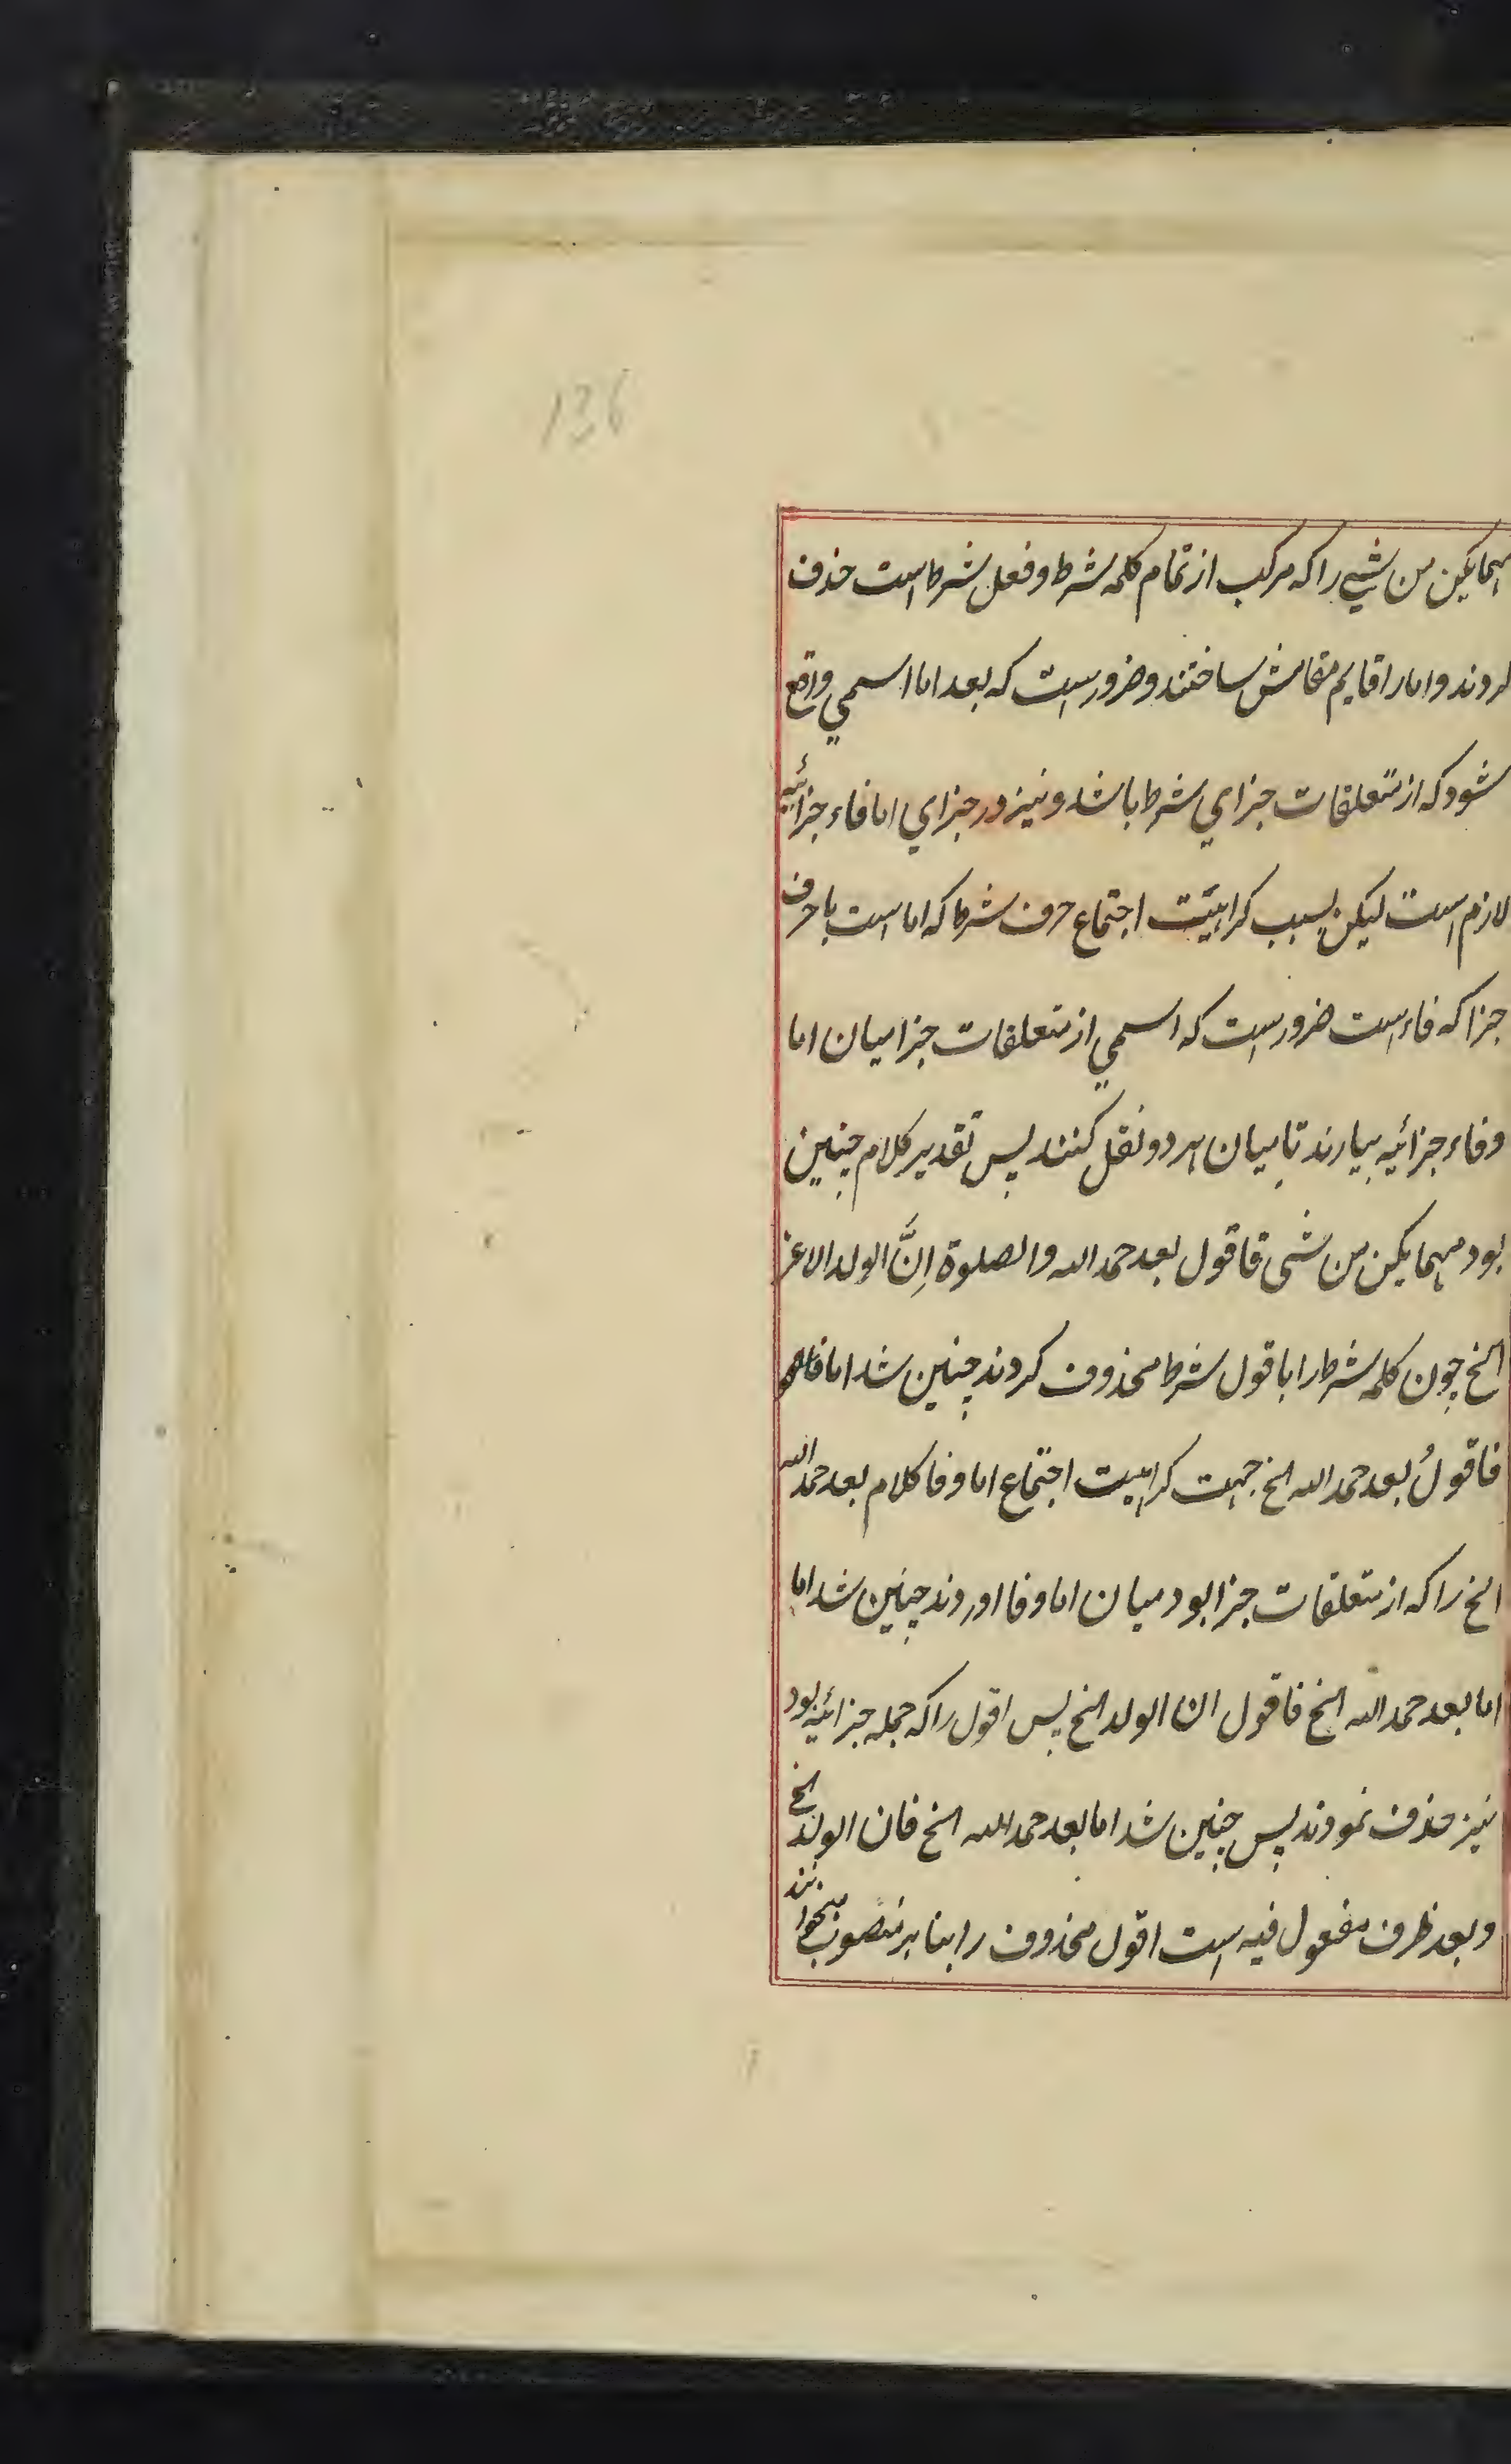 136
مهما یکن من شیي را که مرکب از تمام کلمه شرط و فعل شرط است حذف
کردند و اما را قایم مقامش ساختند و ضرورست که بعد اما اسمي واقع
شود که از متعلقات جزاي شرط باشد و نیز در جزاي اما فاء جزائیه
لازم است لیکن بسبب کراهیّت اجتماع حرف شرط که اما است با حرف
جزا که فاء است ضرورست که اسمي از متعلقات جزا میان اما
و فاء جزائیه بیارند تا میان هر دو نقل کنند پس تقدیر کلام چنین
بود مهما یکن من شی فاقول بعد حمد الله والصلوة اِنَّ الولد الاعز
الخ چون کلمه شرط را با قول شرط محذوف کردند چنین شد اما
فاقولُ بعد حمد الله الخ جهت کراهیت اجتماع اما و فا کلام بعد حمد الله
الخ را که از متعلقات جزا بود میان اما و فا اوردند چنین شد اما
اما بعد حمد الله الخ فاقول ان الولد الخ پس اقول را که جمله جزائیه بود
نیز حذف نمودند پس چنین شد اما بعد حمد الله الخ فان الولد الخ
و بعد ظرف مفعول فیه است اقول محذوف را بنا بر منصوب میخوانند